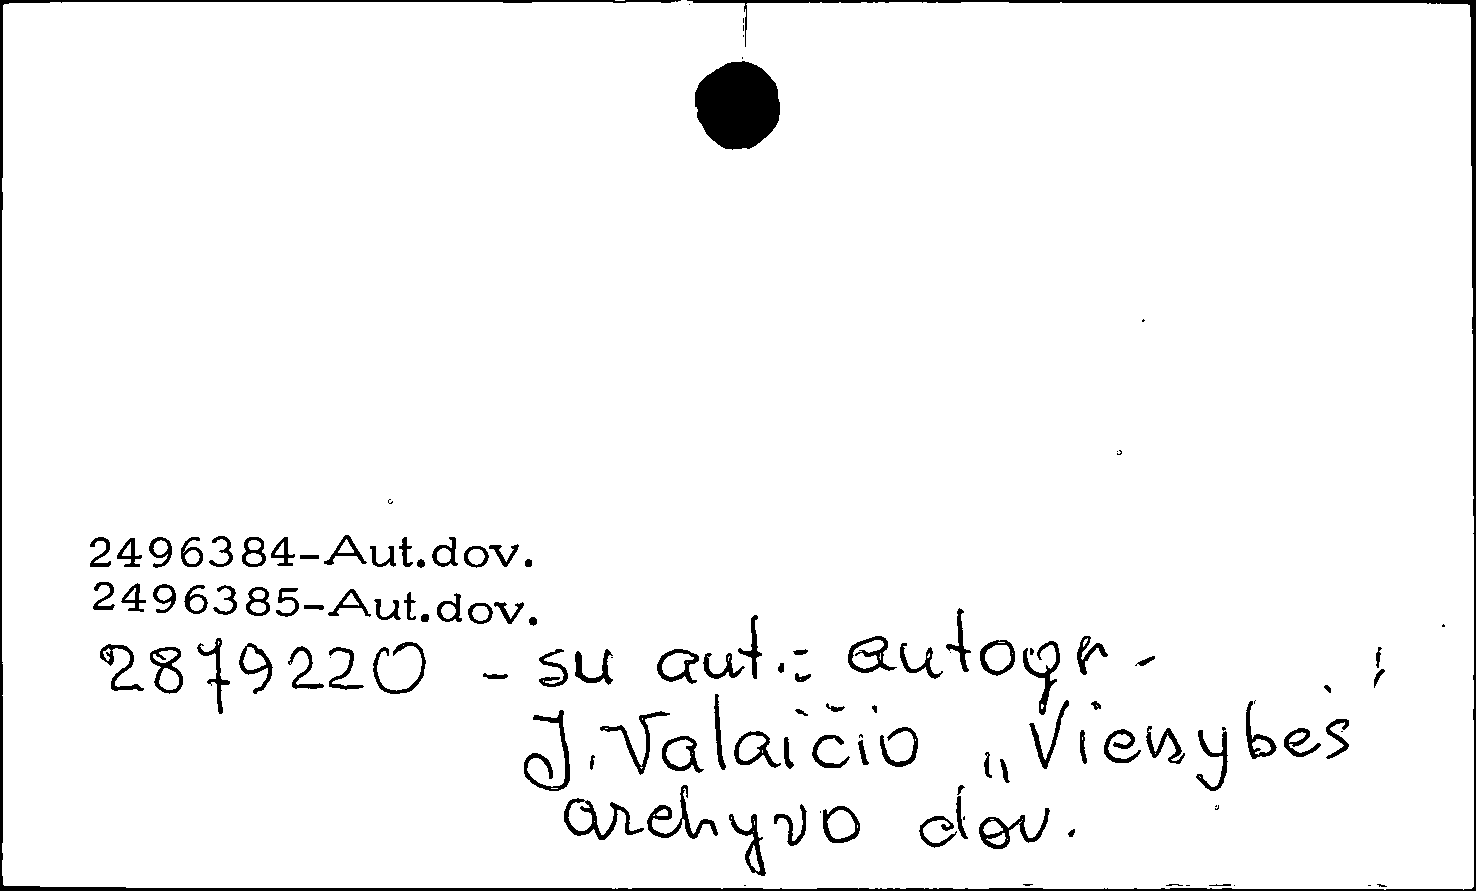 2496384-Aut.dov.
2496385-Aut.dov.
2879220 - su aut.: autogr.
J. Valaičio „Vienybės"
archyvo dov.